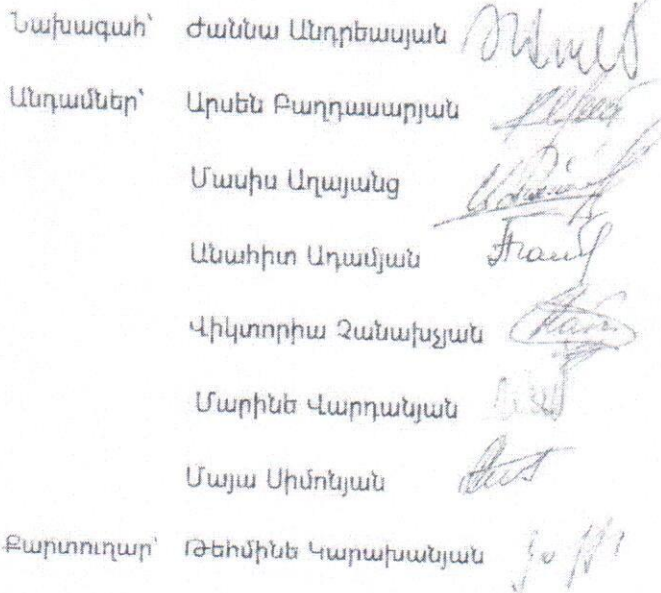 Նախագահ՝ Ժաննա Անդրեասյան
Անդամներ՝ Արսեն Բաղդասարյան
Մասիս Աղայանց
Անահիտ Ադամյան
Վիկտորիա Չանախչյան
Մարինե Վարդանյան
Մայա Սիմոնյան
Քարտուղար՝ Թեհմինե Կարախանյան